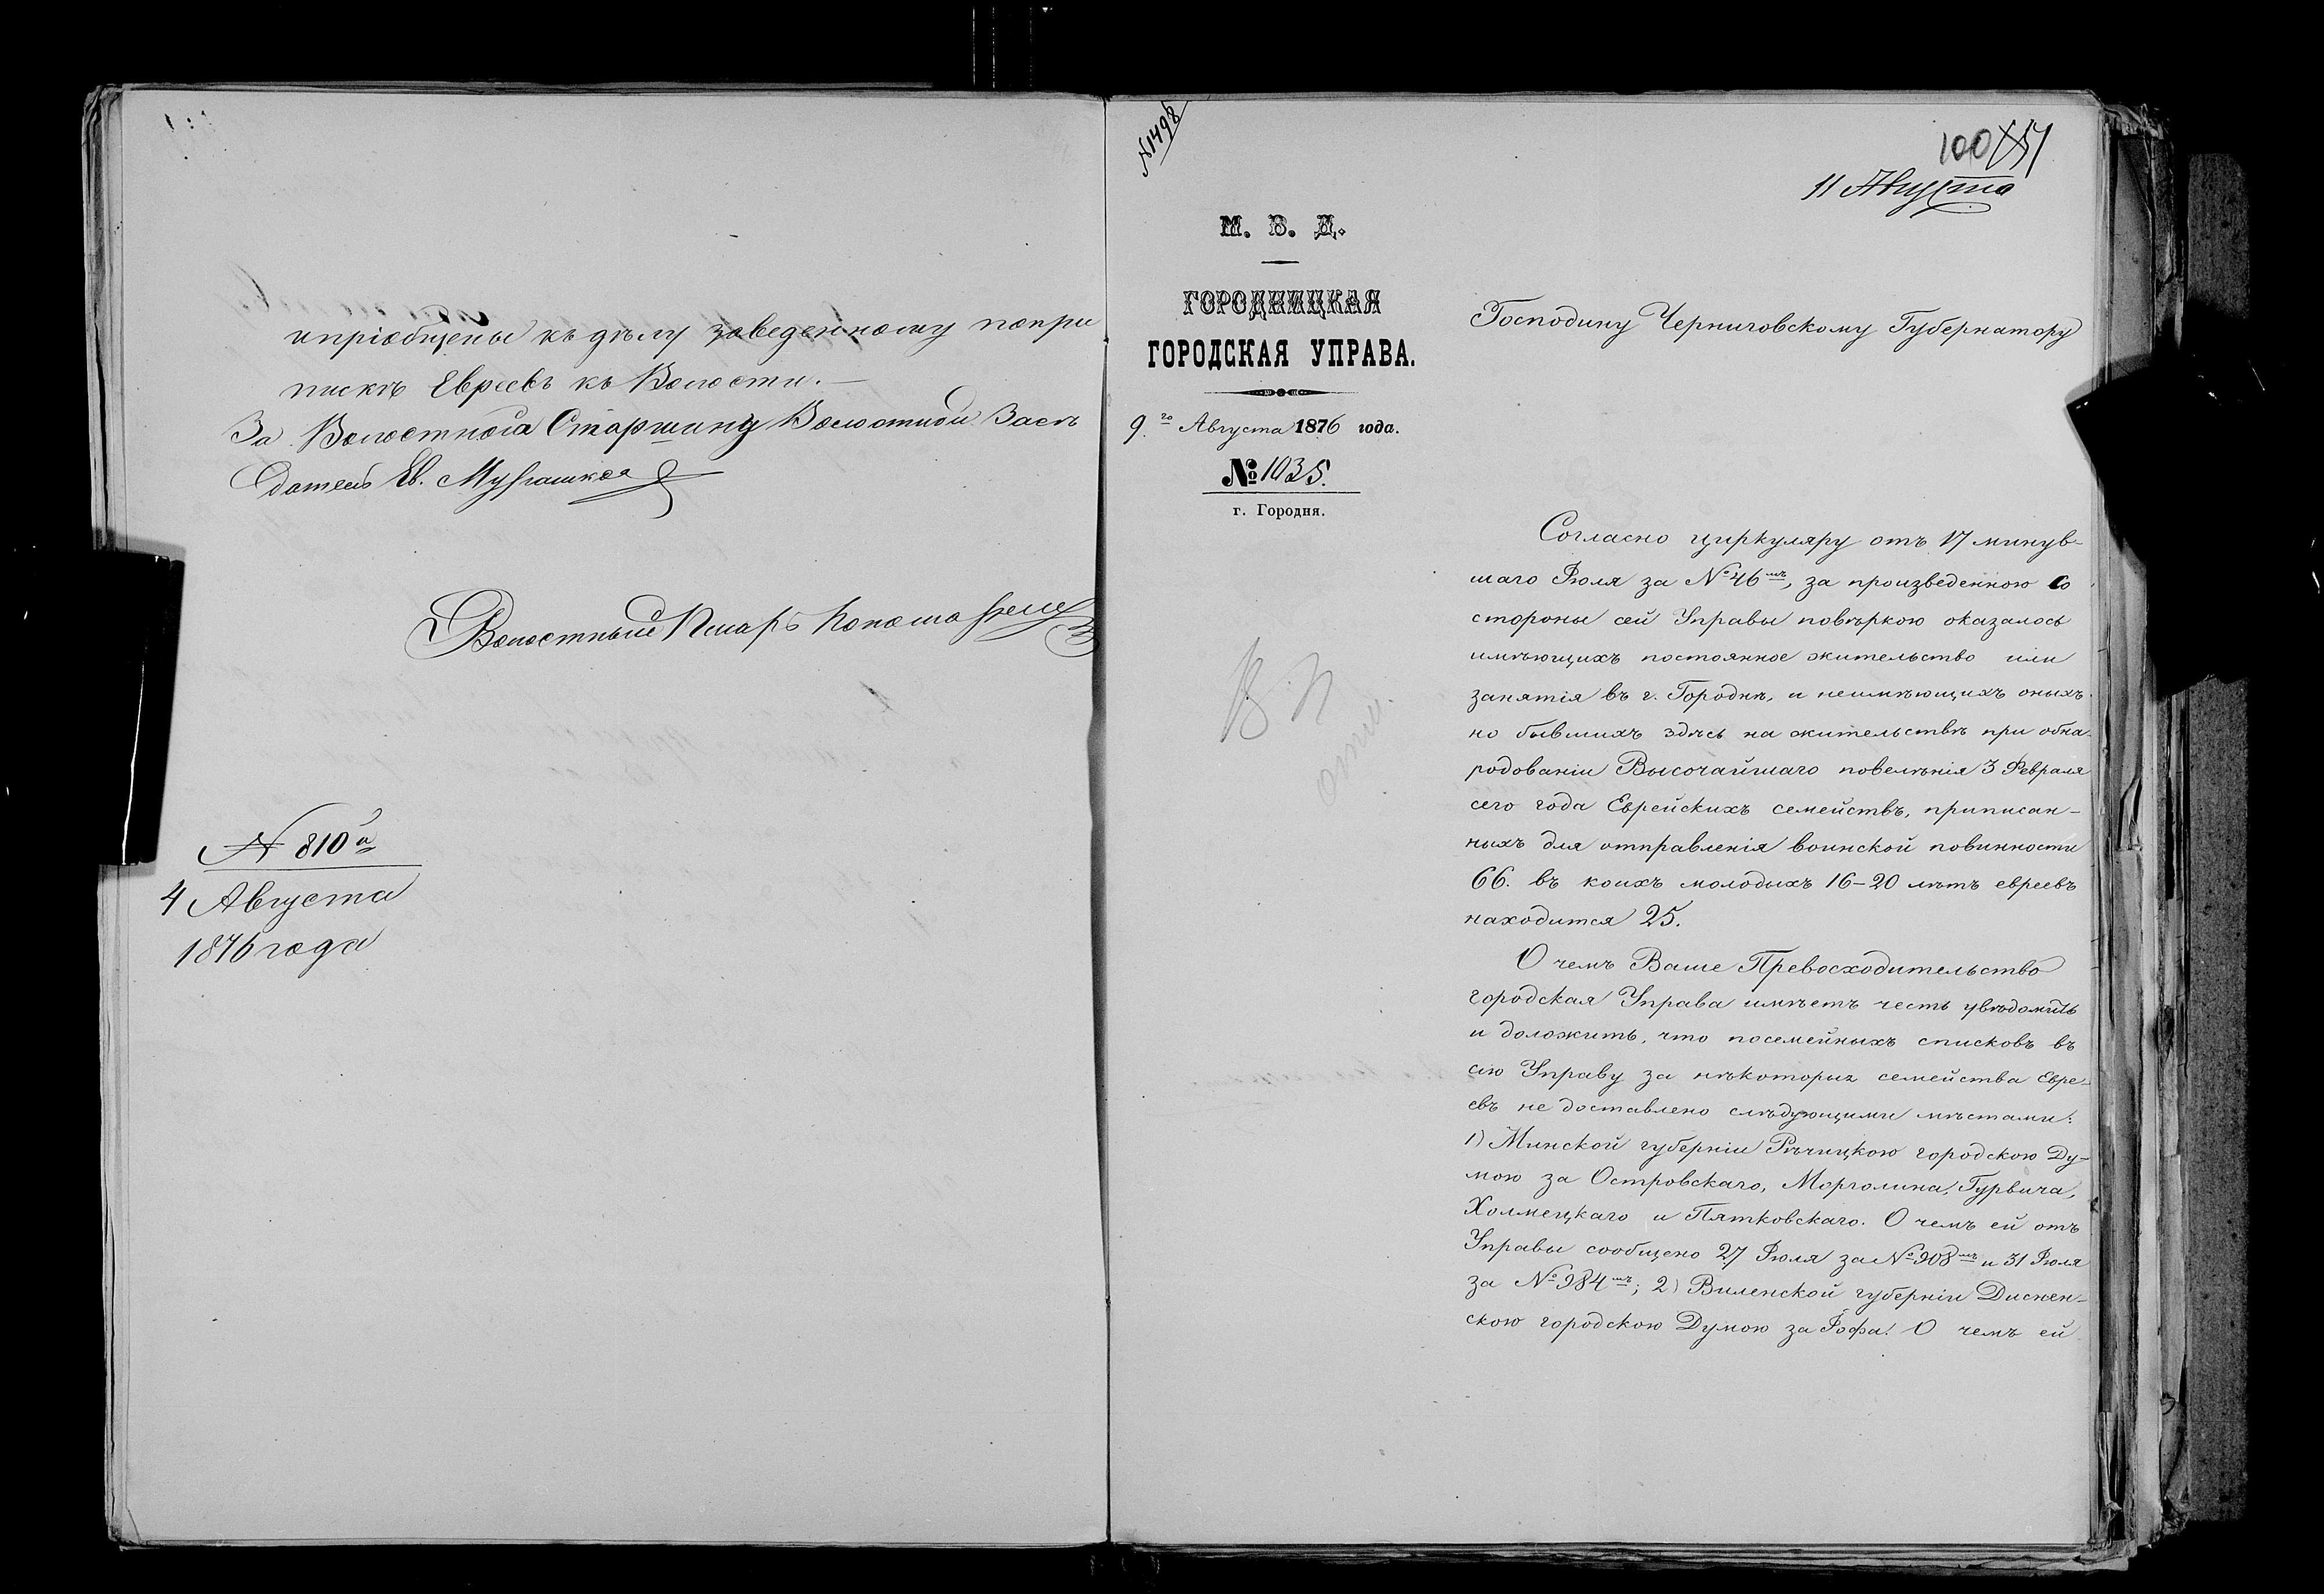 и пріобщены къ дѣлу заведенному по при
пискѣ Евреевъ къ Волости.—
За Волостного Старшину Волостной Засѣ
датель Ев.
Волостный Писарь
№ 810й
4 Августа
1876 года
№1498
100
11 Августа
М. В. Д.
ГОРОДНИЦКАЯ
ГОРОДСКАЯ УПРАВА.
9.го Августа 1876 года.
№ 1035.
г. Городня.
Господину Черниговскому Губернатору
Согласно циркуляру отъ 17 минув-
шаго Іюля за №46мъ, за произведенною со
стороны сей Управы повѣркою оказалось
имѣющихъ постоянное жительство или
занятія въ г. Городнѣ, и неимѣющихъ оныхъ
но бывшихъ здѣсь на жительствѣ при обна-
родованіи Высочайшаго повелѣнія 3 Февраля
сего года Еврейскихъ семействъ, приписан-
ныхъ для отправленія воинской повинности
66. въ коихъ молодыхъ 16-20 лѣтъ евреевъ
находится 25.
О чемъ Ваше Превосходительство
городская Управа имѣетъ честь увѣдомить
и доложить, что посемейныхъ списковъ въ
сію Управу за нѣкоторыя семейства Евре-
евъ не доставлено слѣдующими мѣстами:
1) Минской губерніи Рѣчицкою городскою Ду-
мою за Островскаго, Морголина, Гурвича,
Холмецкаго и Пятковскаго. О чемъ ей отъ
Управы сообщено 27 Іюля за №908мъ и 31 Іюля
за №984мъ; 2) Виленской губерніи Диснен-
скою городскою Думою за Іофа. О чемъ ей